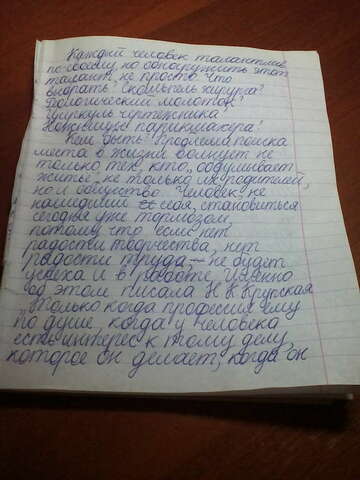 Каждый человек талантлив
по-своему, но обнаружить этот
талант не просто. Что
выбрать? Скальпель хирурга?
Геологический молоток?
Циркуль чертежника
Ножницы парикмахера?
Кем быть? Проблема поиска
места в жизни волнует не
только тех, кто обдумывает
житьё, не только их родителей,
но и общество. Человек, не
нашедший себя, становиться
сегодня уже тормозом,
потому что если нет
радости творчества, нет
радости труда — не будет
успеха и в работе. Именно
об этом писала Н К Крупская
"Только когда профессия ему
по душе, когда у человека
есть интерес к тому делу,
которое он делает, когда он